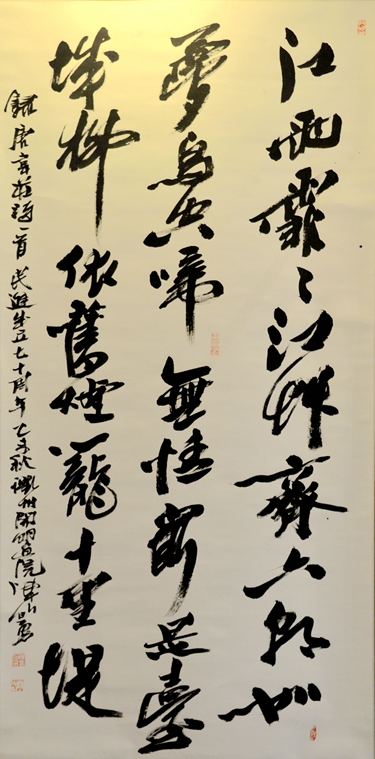 江雨霏〻江艸齊六朝如
夢鳥空啼無情最是臺
城柳依舊煙籠十里堤
錄唐韋莊詩一首民進成立七十周年乙未秋州開明畫院